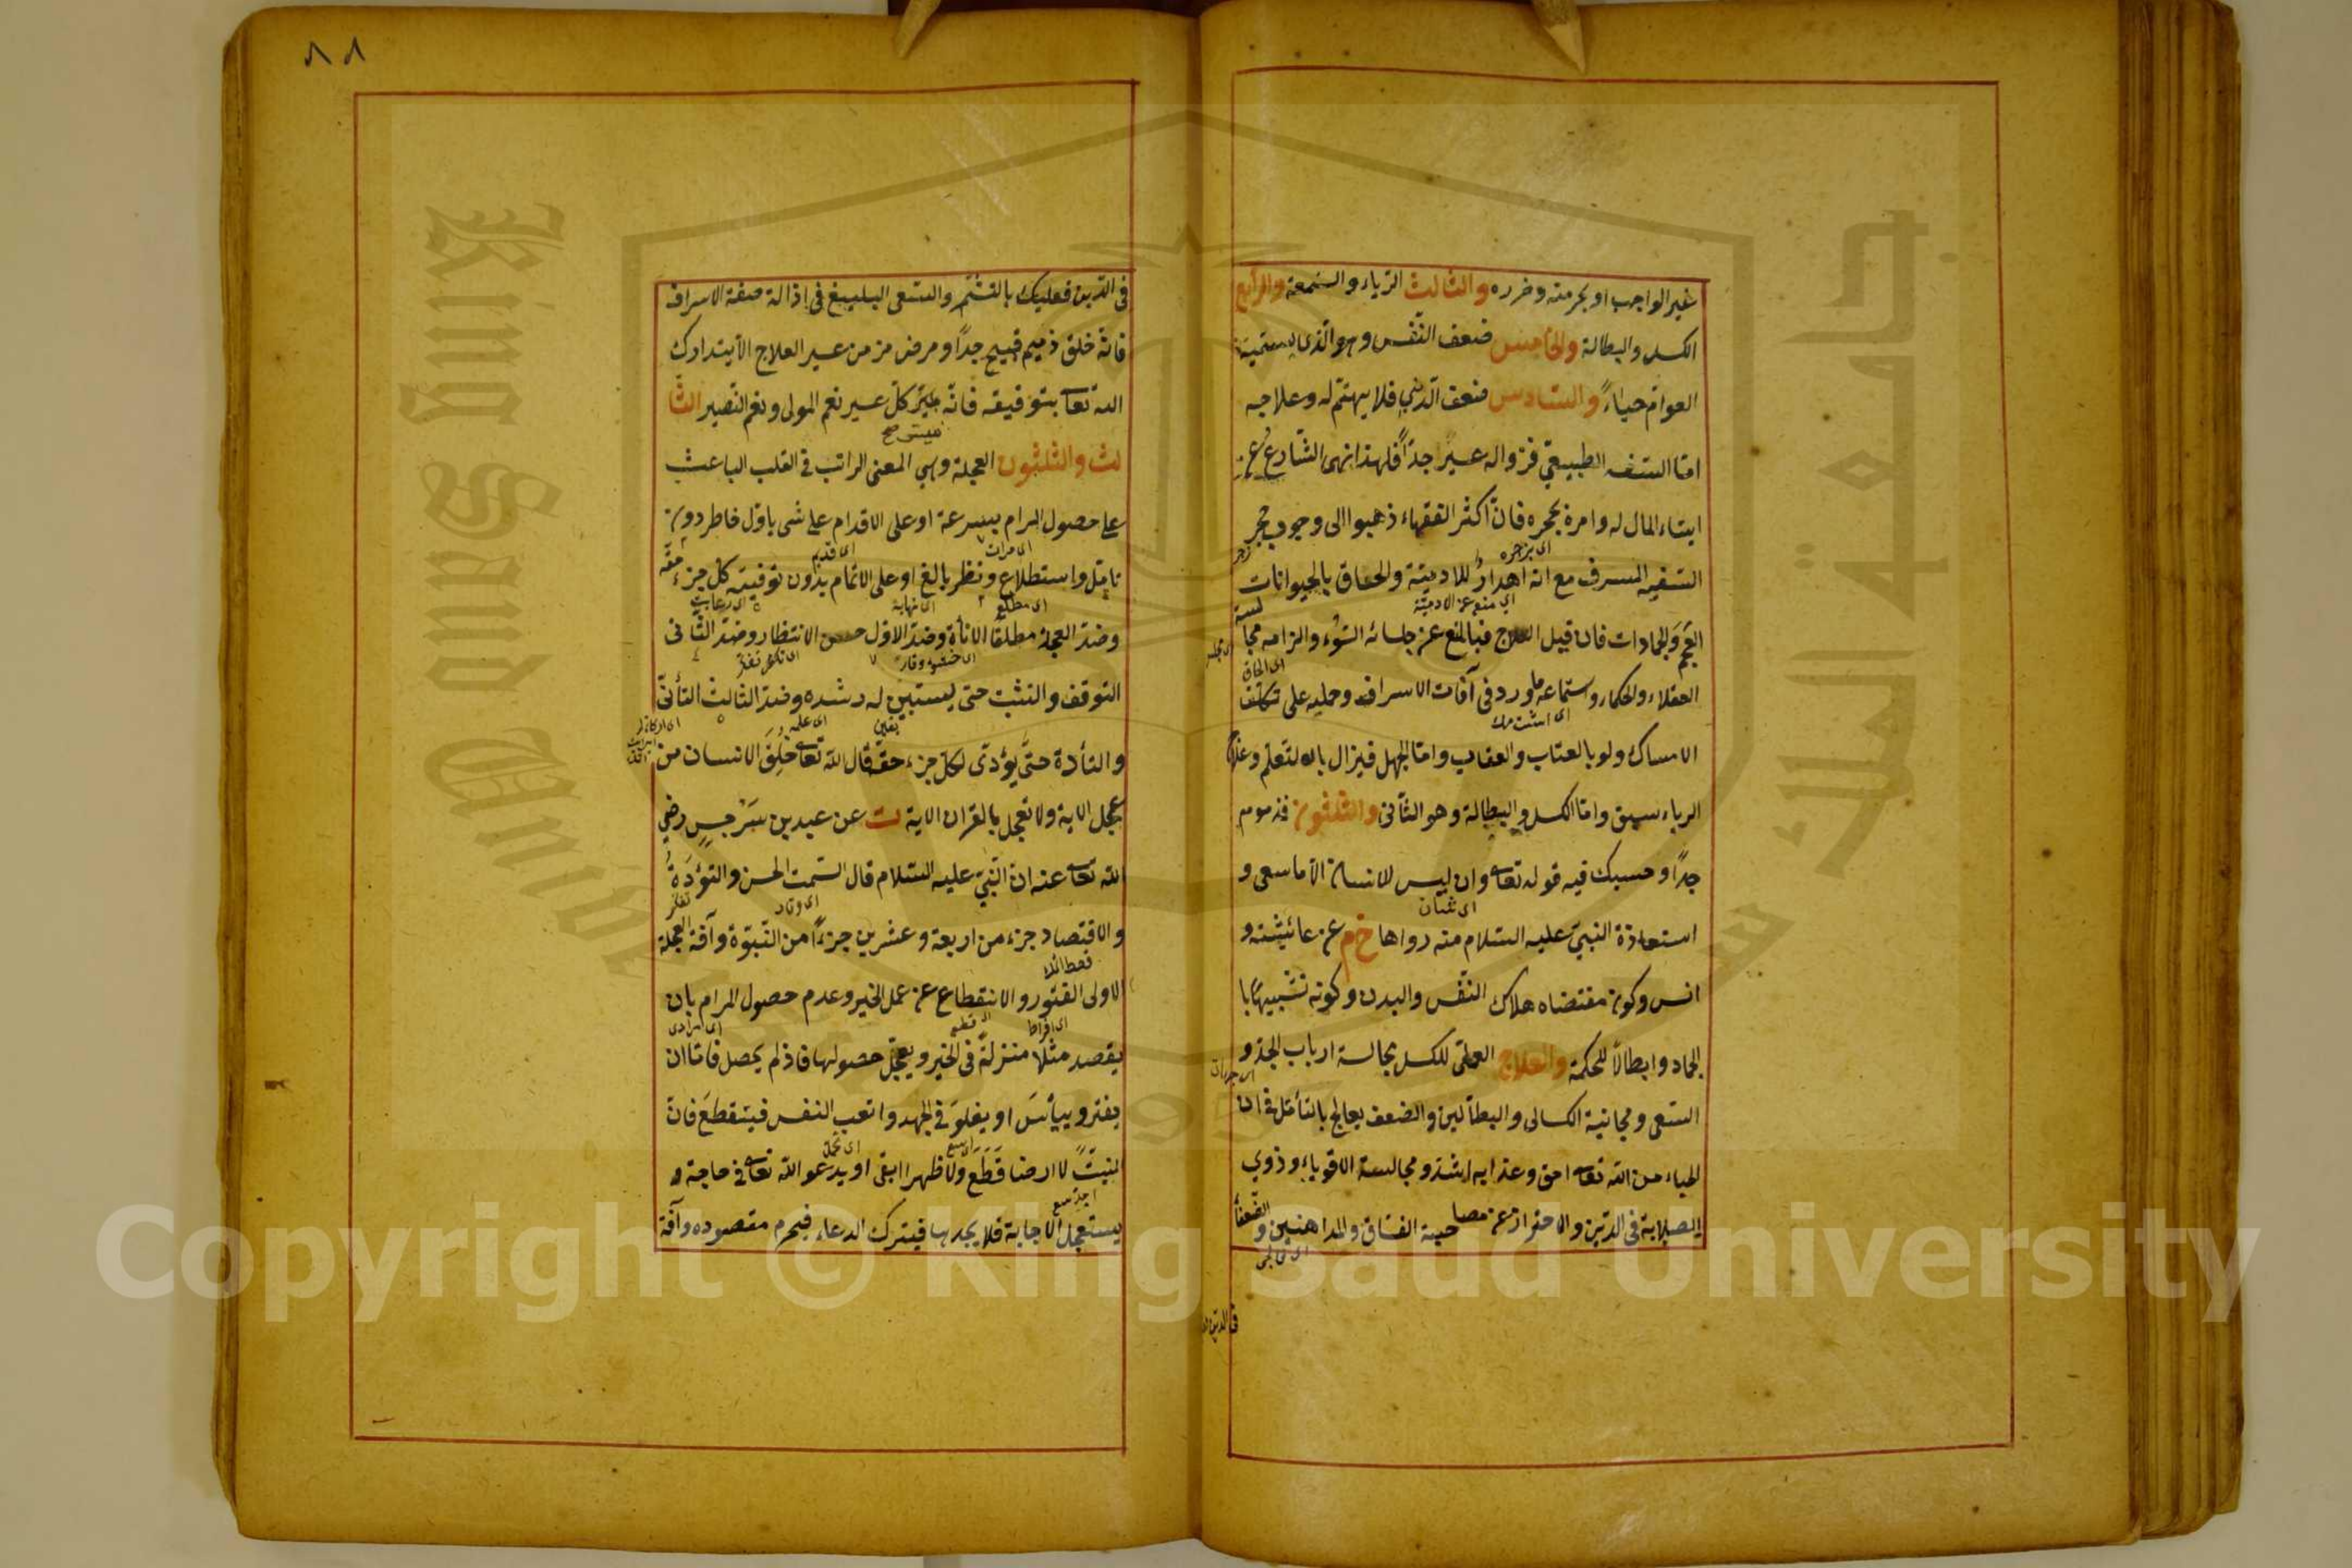 غير الواجب او بحرمته وضرره والثالث الرياء والسمعة والرابع
الكسل والبطالة والخامس ضعف النفس وهو الذي يسميه
العوام حياء والسادس ضعف الدين فلا يهتم له وعلاجه
اما السفه الطبيعي فزواله عسير جدا فلهذا نهى الشارع عن
ايتاء المال له وامر بحجره فان اكثر الفقهاء ذهبوا الى وجوب حجر
السفيه المسرف مع انه اهدار للادمية والحاق بالحيوانات
العجم والجمادات فان قبل العلاج فبالمنع عن جلسائه السوء والزامه مجا
لسة
العقلاء والحكماء واستماعه ما ورد في آفات الاسراف وحمله على تكلف
الامساك ولو بالعتاب والعقاب واما الجهل فيزال بالتعلم وعلاج
الرياء سبق واما الكسل والبطالة وهو الثاني والثلثون فمذموم
جدا وحسبك فيه قوله تعالى وان ليس للانسان الا ما سعى و
استعاذة النبي عليه السلام منه رواها خ م عن عائشة و
انس وكون مقتضاه هلاك النفس والبدن وكونه تشبيها با
لجماد وابطالا للحكمة والعلاج العملى للكسل مجالسة ارباب الجد و
السعى ومجانبة الكسالى والبطالين والضعف يعالج بالتأمل فى ان
الحياء من الله تعالى احق وعذابه اشد ومجالسة الاقوياء وذوي
الصلابة فى الدين والاحتراز عن مصاحبة الفساق والمداهنين والضعفاء
٨٨
فى الدين فعليك بالتشمر والسعى البليغ فى ازالة صفة الاسراف
فانه خلق ذميم قبيح جدا ومرض مزمن عسير العلاج الا يتدارك
الله تعالى بتوفيقه فانه ميسر كل عسير نعم المولى ونعم النصير الثا
لث والثلثون العجلة وهي المعنى الراتب فى القلب الباعث
على حصول المرام بسرعة او على الاقدام على شى باول خاطر دون
تامل واستطلاع ونظر بالغ او على الاتمام بدون توفية كل جزء حقه
وضد العجلة مطلقا الاناة وضد الاول حسن الانتظار وضد الثانى
التوقف والتثبت حتى يستبين له رشده وضد الثالث التأنى
والتأدة حتى يؤدى لكل جزء حقه قال الله تعالى خلق الانسان من
عجل الاية ولا تعجل بالقران الاية ت عن عبد بن سرجس رضي
الله تعالى عنه ان النبى عليه السلام قال السمت الحسن والتؤدة
والاقتصاد جزء من اربعة وعشرين جزءا من النبوة وآفة العجلة
الاولى الفتور والانقطاع عن عمل الخير وعدم حصول المرام بان
يقصد مثلا منزلة فى الخير ويعجل حصولها فاذ لم يحصل فاما ان
يفتر وييأس او يغلو فى الجهد واتعب النفس فينقطع فان
المنبت لا ارضا قطع ولا ظهرا ابقى او يدعو الله تعالى فى حاجة و
يستعجل الاجابة فلا يجدها فيترك الدعاء فيحرم مقصوده وآفة
Copyright © King Saud University